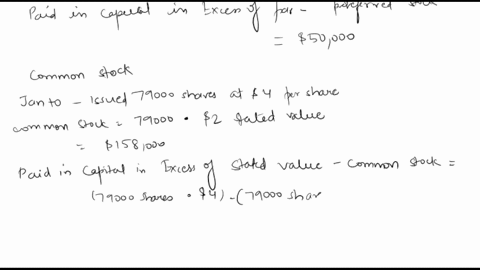 Paid in Capital in Excess of par - preferred stock
= $50,000
Common stock
Jan 10 - Issued 79000 shares at $4 per share
common stock = 79000 • $2 stated value
= $158,000
Paid in Capital in Excess of stated value - common stock =
(79000 shares • $4) - (79000 shar